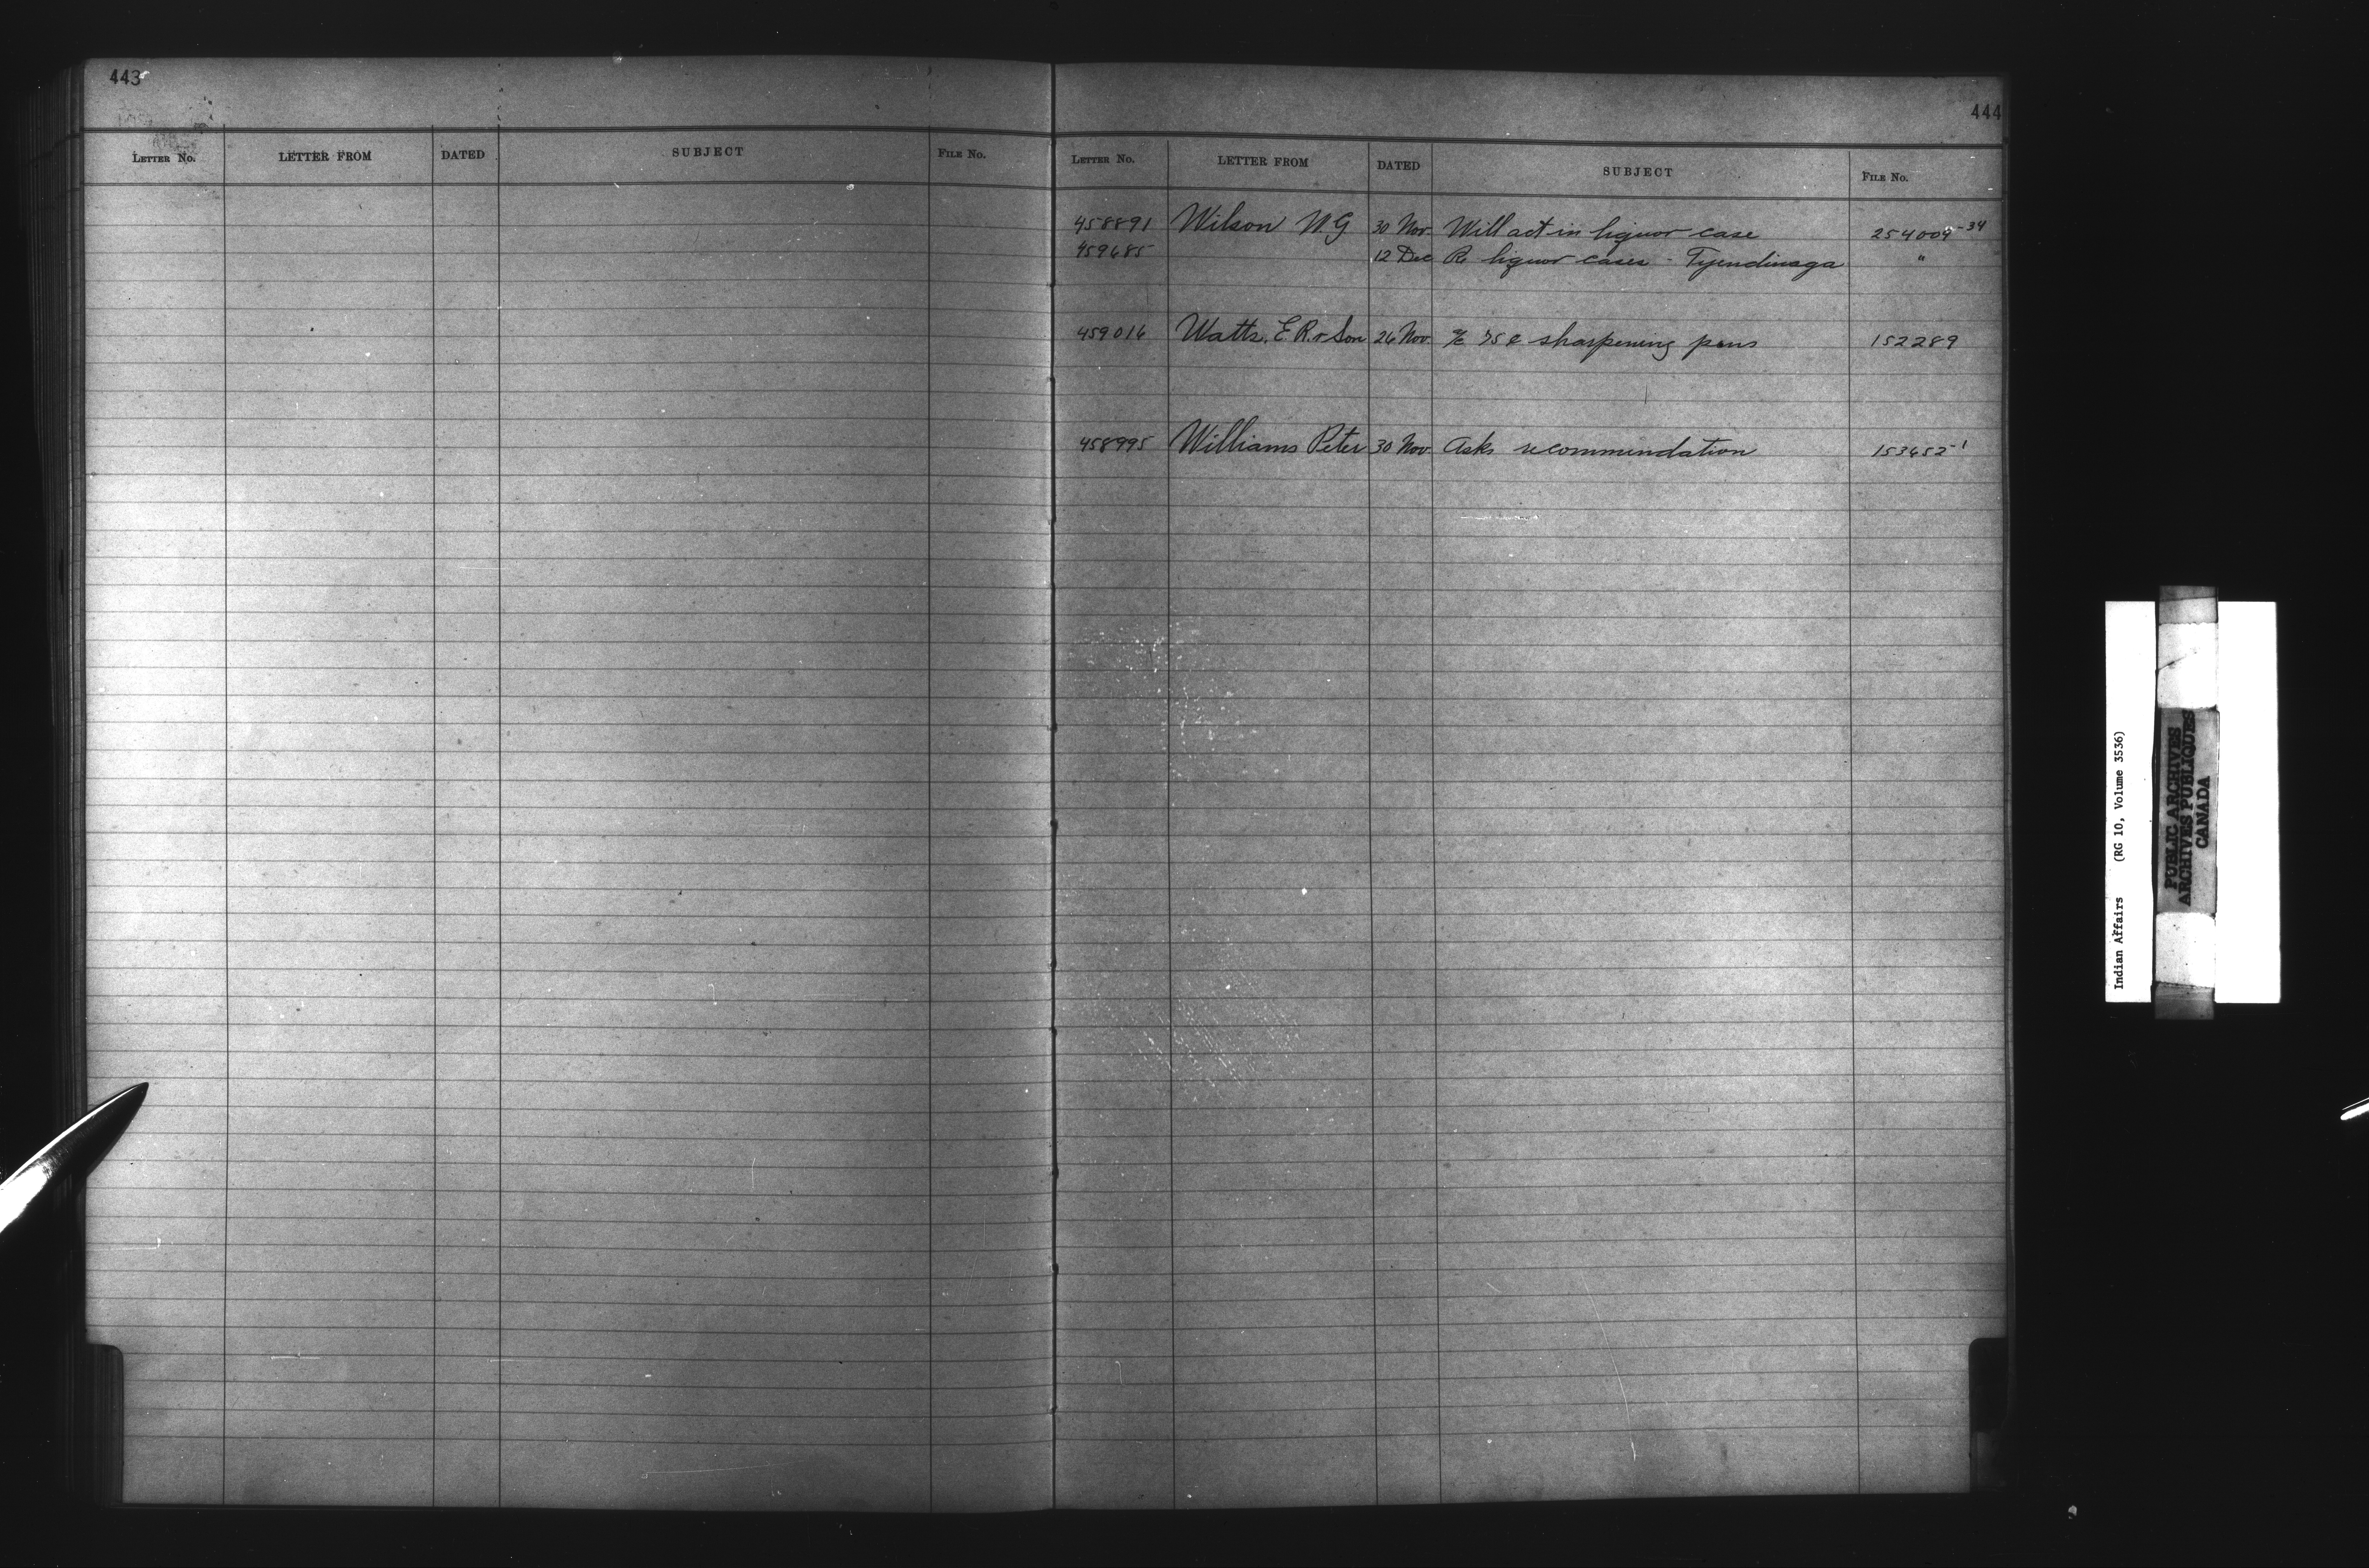 443
LETTER NO. LETTER FROM DATED SUBJECT FILE NO.
444
LETTER NO. LETTER FROM DATED SUBJECT FILE NO.
458891 Wilson W.G 30 Nov. Will act in liquor case 254009-34
459685 12 Dec Re liquor cases - Tyendinaga "
459016 Watts, E.R. & Son 26 Nov. a/c 75 c sharpening pens 152289
458995 Williams Peter 30 Nov. Asks recommendation 153652-1
Indian Affairs (RG 10, Volume 3536)
PUBLIC ARCHIVES
ARCHIVES PUBLIQUES
CANADA